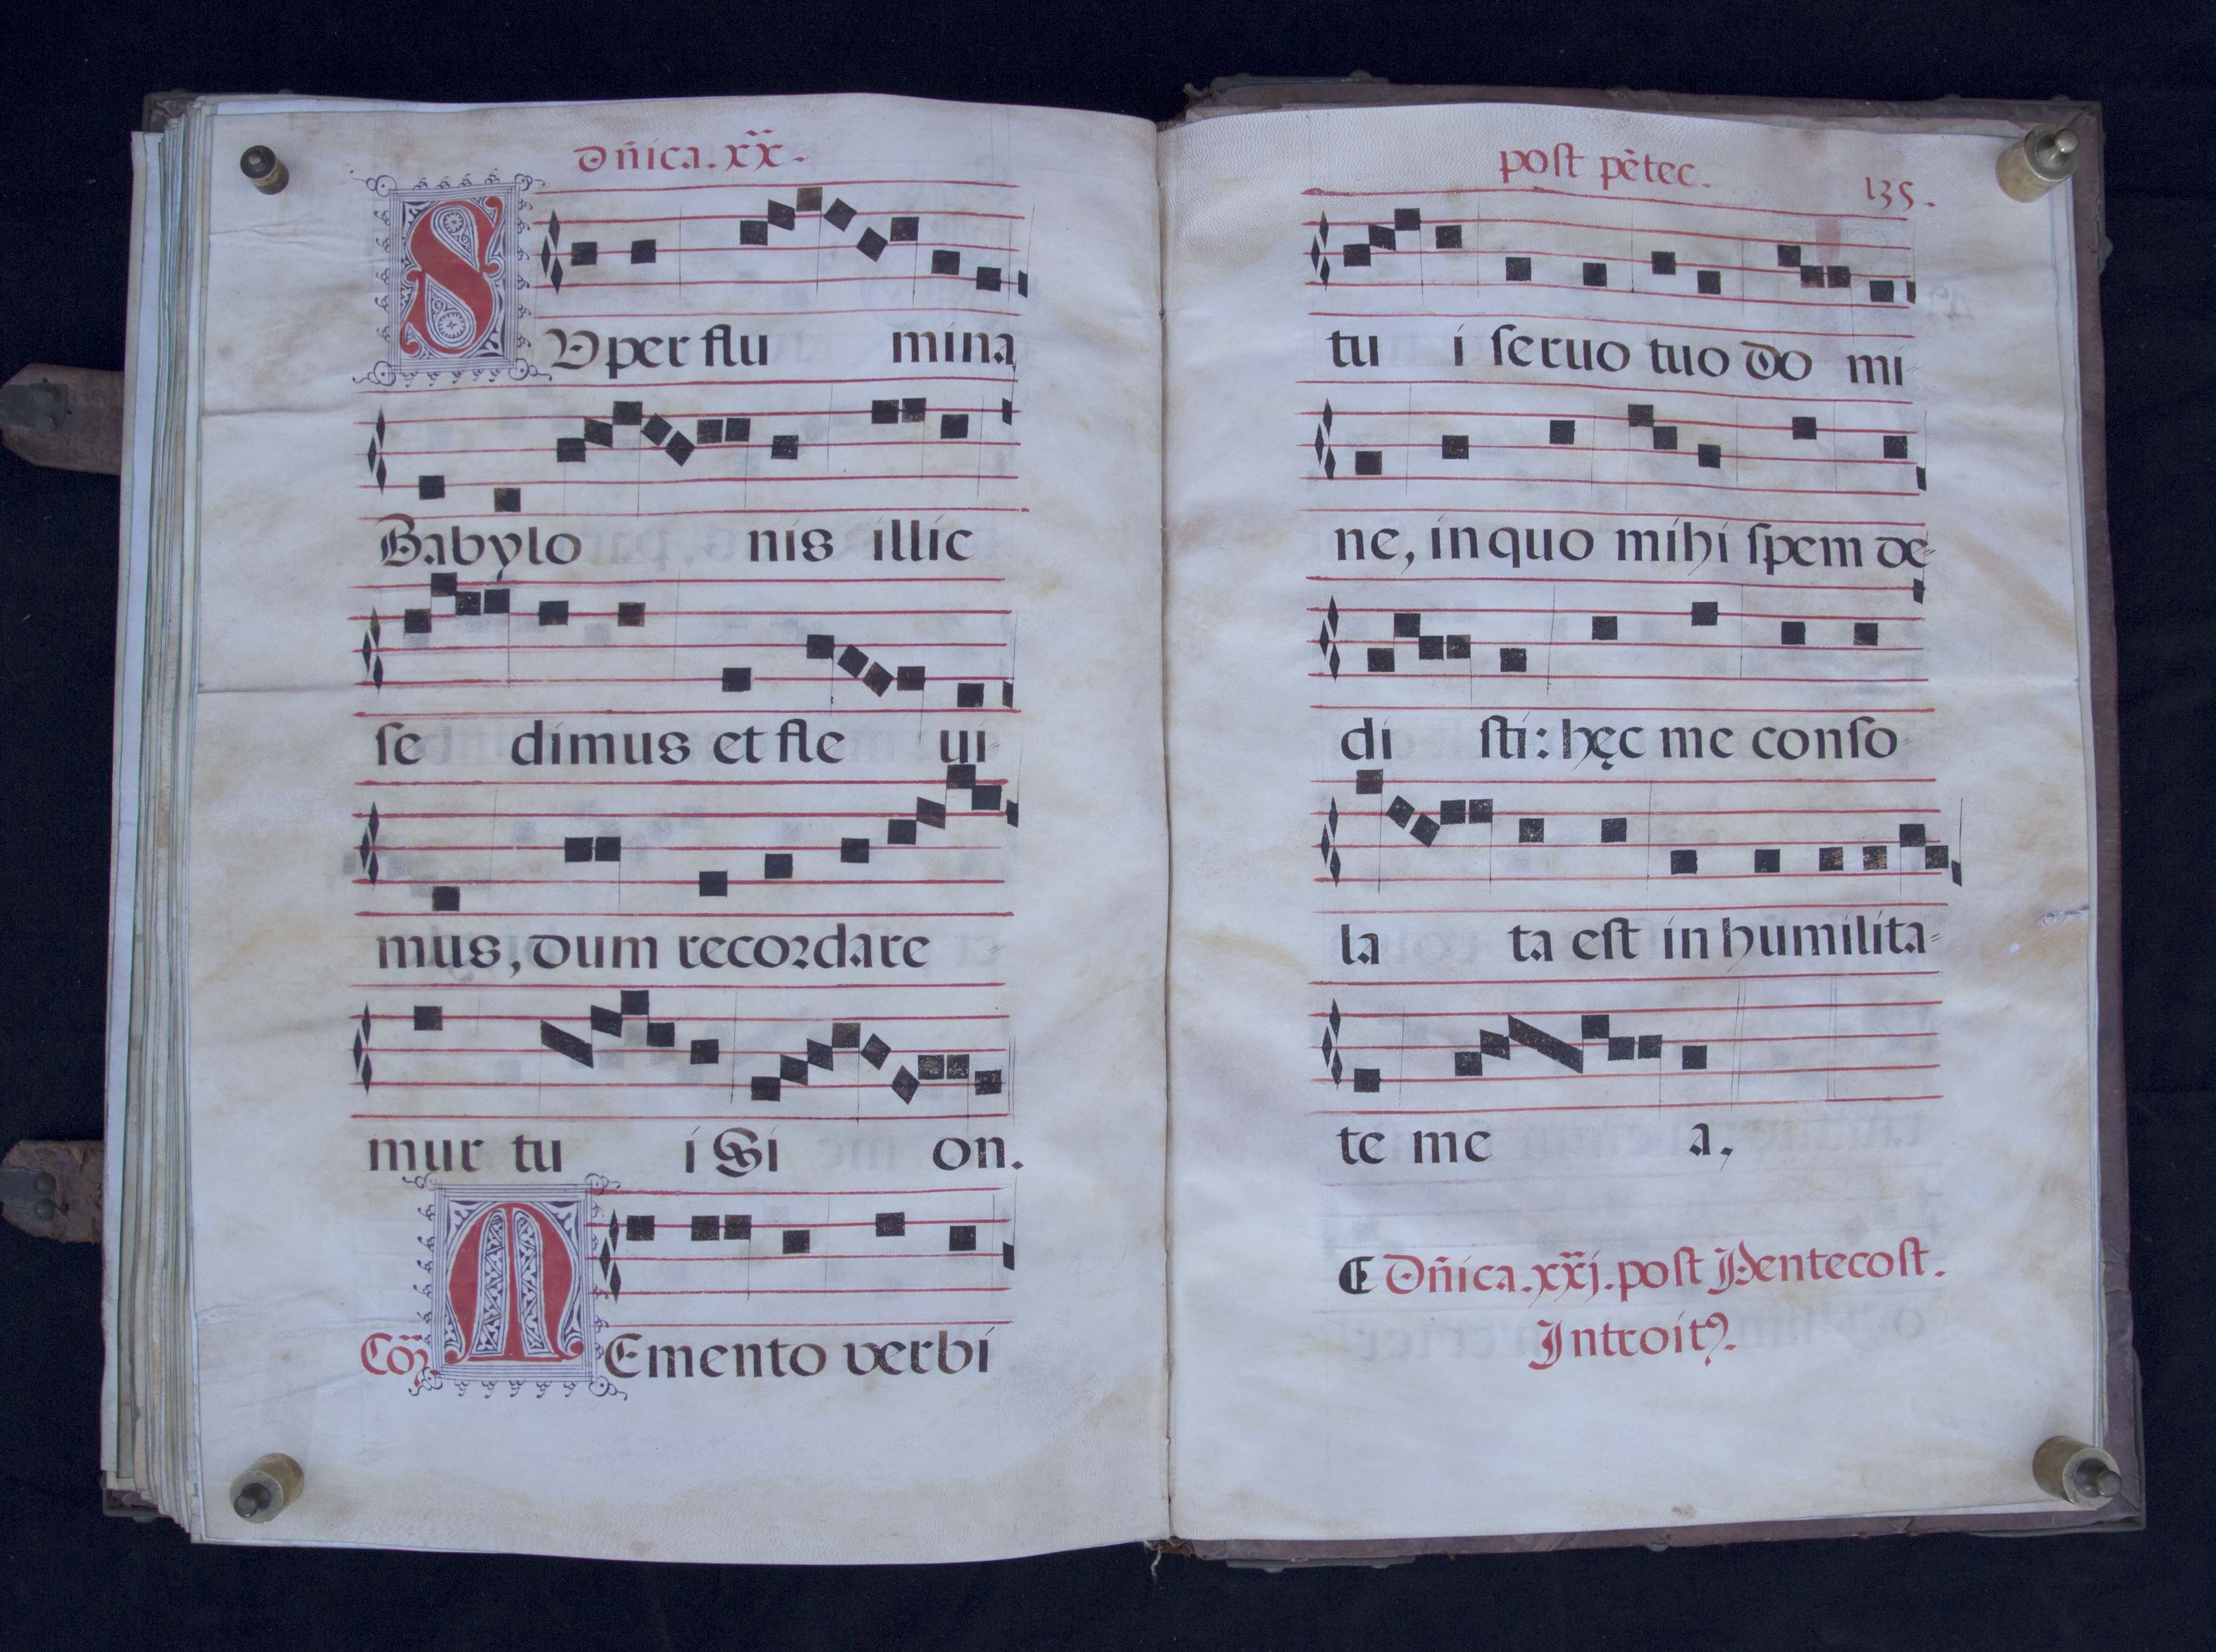 Dñica. xx̃.
SUper flu mina
Babylo nis illic
se dimus et fle ui-
mus, dum recordare
mur tu i Si on.
Cõ MEmento verbi
post pẽtec.
135.
tu i seruo tuo do mi-
ne, in quo mihi spem de-
di sti: hęc me conso-
la ta est in humilita-
te me a,
Dñica. xxj̃. post Pentecost.
Introitꝰ.